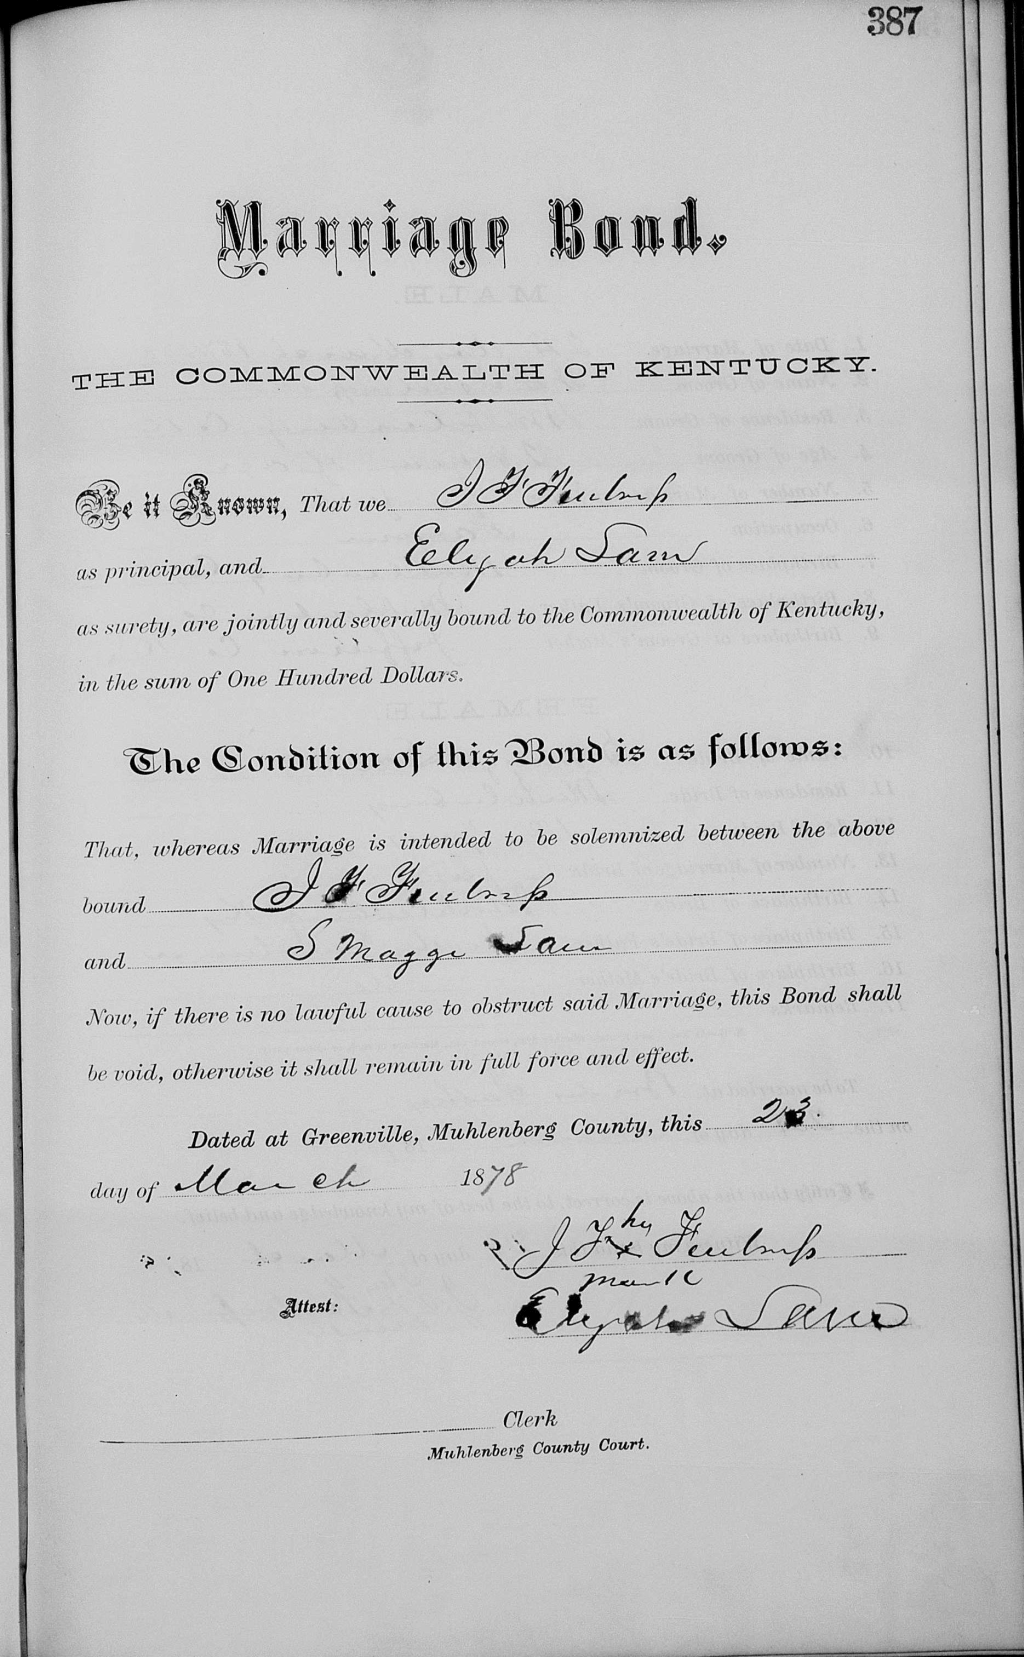 387
Marriage Bond.
THE COMMONWEALTH OF KENTUCKY.
Be it Known, That we J F Fentress
as principal, and Elyjah Sam
as surety, are jointly and severally bound to the Commonwealth of Kentucky,
in the sum of One Hundred Dollars.
The Condition of this Bond is as follows:
That, whereas Marriage is intended to be solemnized between the above
bound J F Fentress
and S Maggi Sam
Now, if there is no lawful cause to obstruct said Marriage, this Bond shall
be void, otherwise it shall remain in full force and effect.
Dated at Greenville, Muhlenberg County, this 23.
day of March 1878
his
J F x Fentress
mark
Attest: Elyjah Sam
Clerk
Muhlenberg County Court.